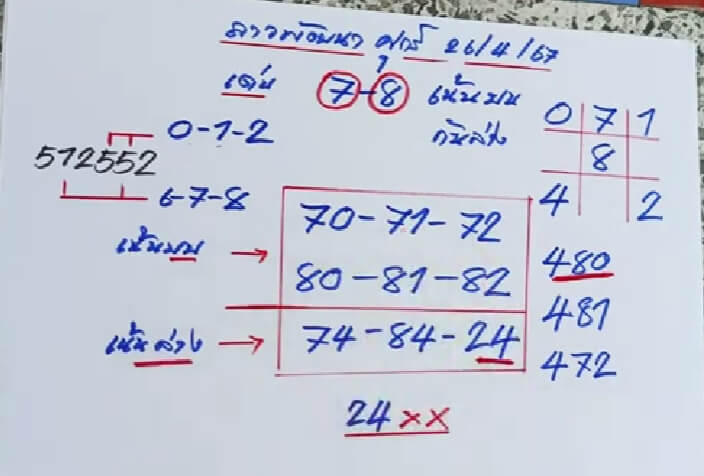 ลาวพัฒนา ศุกร์ 26/4/67
เด่น 7-8 เน้นบน
กินล่าง
0 7 1
8
4 2
0-1-2
512552
6-7-8
เน้นบน → 70-71-72
80-81-82
เน้นล่าง → 74-84-24
480
481
472
24xx